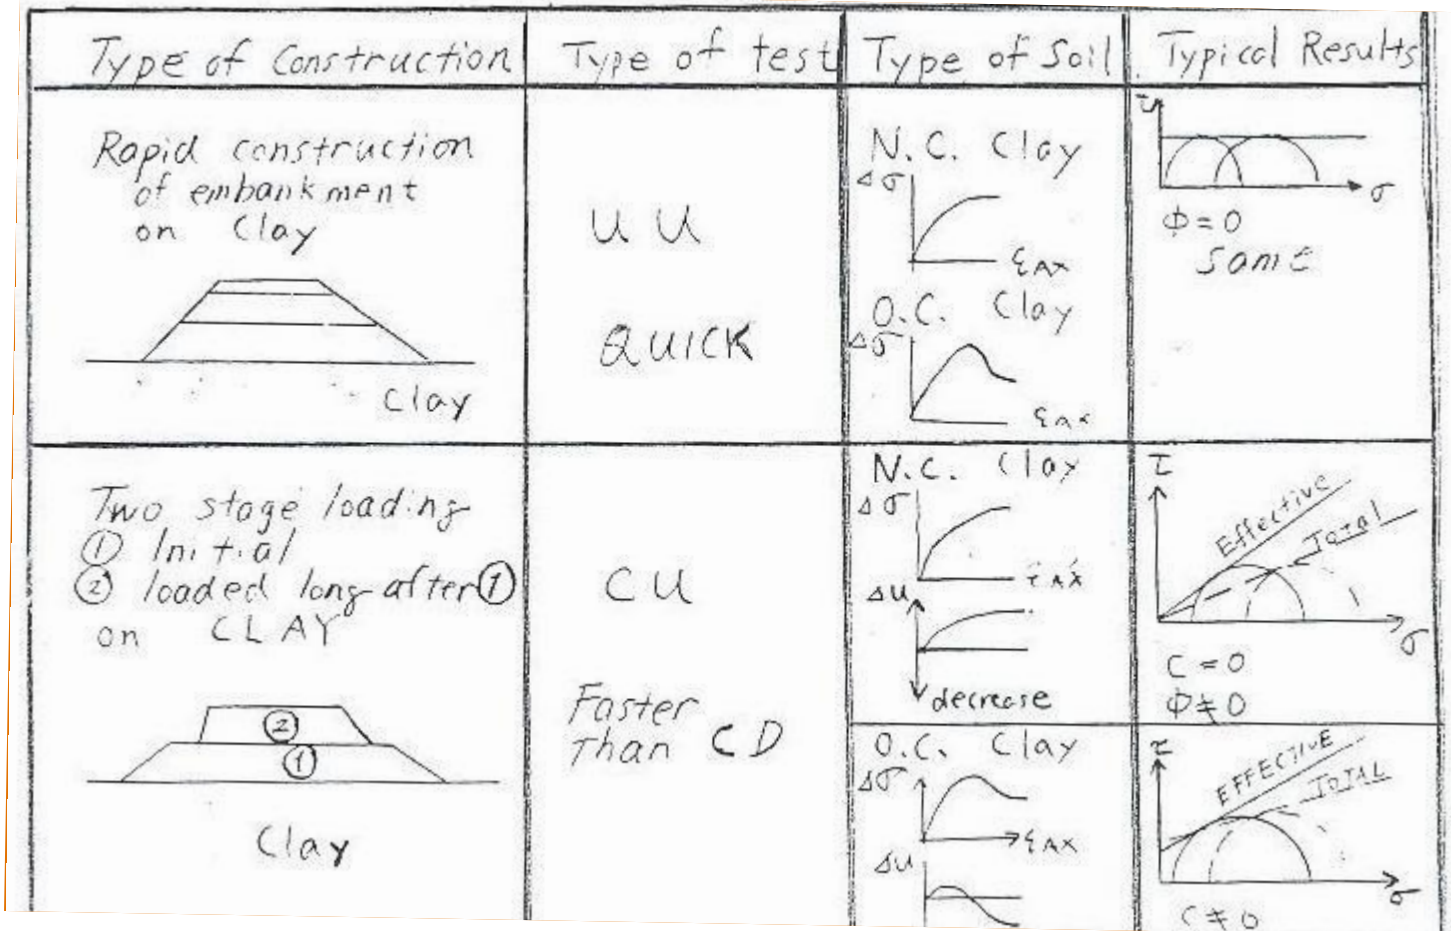 Type of Construction
Type of test
Type of Soil
Typical Results
Rapid construction
of embankment
on Clay
Clay
UU
QUICK
N.C. Clay
Δσ
ε AX
O.C. Clay
Δσ
ε AX
τ
σ
Φ = 0
Same
Two stage loading
① Initial
② loaded long after ①
on CLAY
②
①
Clay
CU
Faster
Than CD
N.C. Clay
Δσ
ε AX
Δu
decrease
τ
Effective
Total
σ
C = 0
Φ ≠ 0
O.C. Clay
Δσ
ε AX
Δu
τ
EFFECTIVE
TOTAL
σ
C ≠ 0